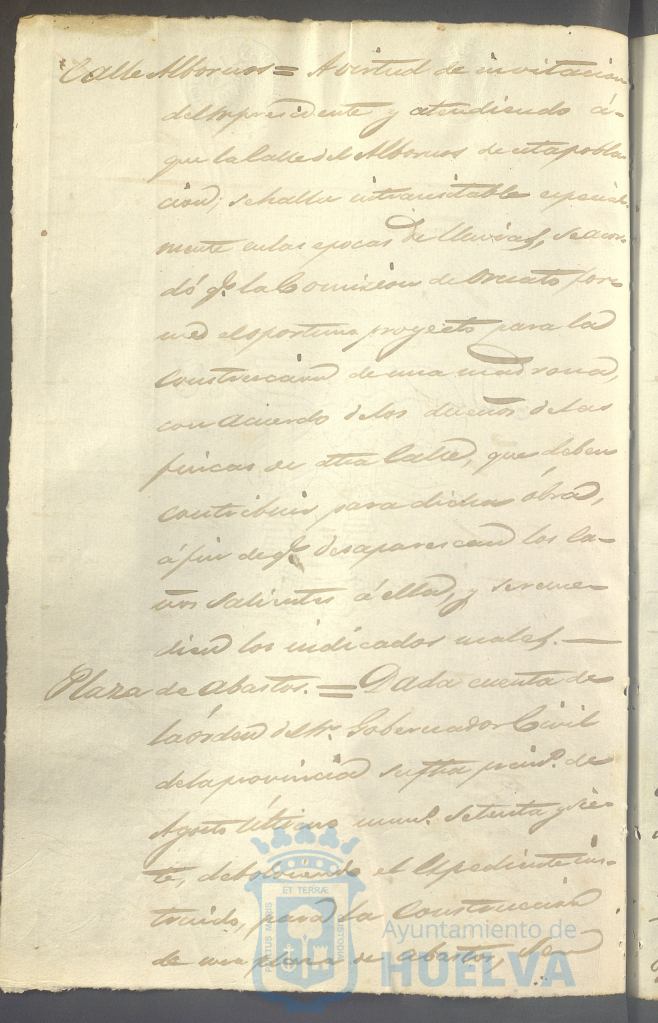 Calle Albornos = A virtud de invitacion
del Sr presidente y atendiendo á
que la Calle del Albornos de esta pobla-
cion, se halla intransitable especial-
mente en las epocas de lluvias, se acor-
dó qe. la Comision de Ornato for-
me el oportuno proyecto para la
construccion de una madrona,
con acuerdo de los dueños de las
fincas de dha Calle, que deben
contribuir para dicha obra,
á fin de qe. desaparescan los ca-
ños salientes á ella, y se reme-
dien los indicados males. —
Plaza de abastos. = Dada cuenta de
la órden del Sr. Gobernador Civil
de la provincia su fha primo. de
Agosto último numo. setenta y sie-
te, debolviendo el Expediente ins-
truido, para la Construccion
de una plaza de abastos, se
PORTUS MARIS ET TERRÆ CUSTODIA
Ayuntamiento de
HUELVA